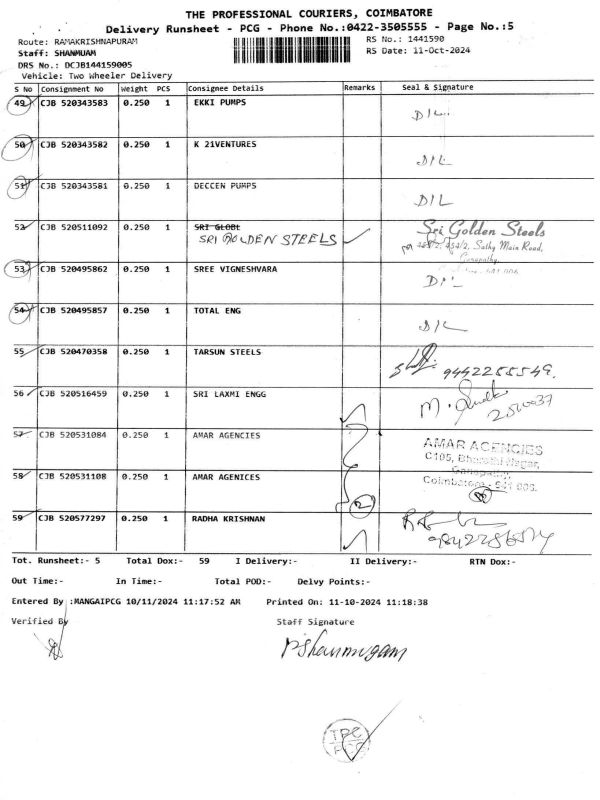 THE PROFESSIONAL COURIERS, COIMBATORE
Delivery Runsheet - PCG - Phone No.:0422-3505555 - Page No.:5
Route: RAMAKRISHNAPURAM RS No.: 1441590
Staff: SHANMUAM RS Date: 11-Oct-2024
DRS No.: DCJB144159005
Vehicle: Two Wheeler Delivery
S No Consignment No Weight PCS Consignee Details Remarks Seal & Signature
49 CJB 520343583 0.250 1 EKKI PUMPS D/L
50 CJB 520343582 0.250 1 K 21VENTURES D/L
51 CJB 520343581 0.250 1 DECCEN PUMPS D/L
52 CJB 520511092 0.250 1 SRI GLOBL Sri Golden Steels
SRI GOLDEN STEELS Sathy Main Road,
Ganapathy,
53 CJB 520495862 0.250 1 SREE VIGNESHVARA D/L
54 CJB 520495857 0.250 1 TOTAL ENG D/L
55 CJB 520470358 0.250 1 TARSUN STEELS 9442255549.
56 CJB 520516459 0.250 1 SRI LAXMI ENGG
57 CJB 520531084 0.250 1 AMAR AGENCIES AMAR AGENCIES
C105, Bharathi Nagar,
Ganapathy
58 CJB 520531108 0.250 1 AMAR AGENICES Coimbatore - 641 006.
2
59 CJB 520577297 0.250 1 RADHA KRISHNAN
Tot. Runsheet:- 5 Total Dox:- 59 I Delivery:- II Delivery:- RTN Dox:-
Out Time:- In Time:- Total POD:- Delvy Points:-
Entered By :MANGAIPCG 10/11/2024 11:17:52 AM Printed On: 11-10-2024 11:18:38
Verified By Staff Signature
P.Shanmugam
TPC
PCG